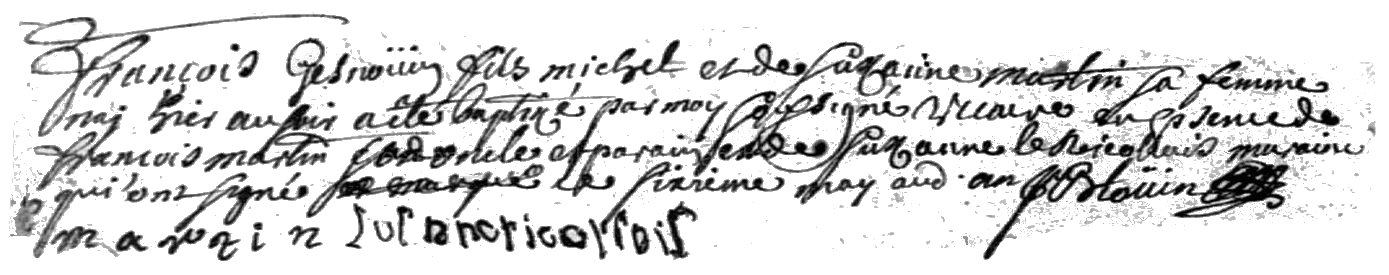 françois Gesnoüin fils michel et de Suzanne martin sa femme
naj hier au soir a été baptizé par moy soussigné viccaire en psence de
françois martin son oncle et parain et de Suzanne le Nicollais maraine
qui ont signé le sixième may aud. an Bloüin
martin